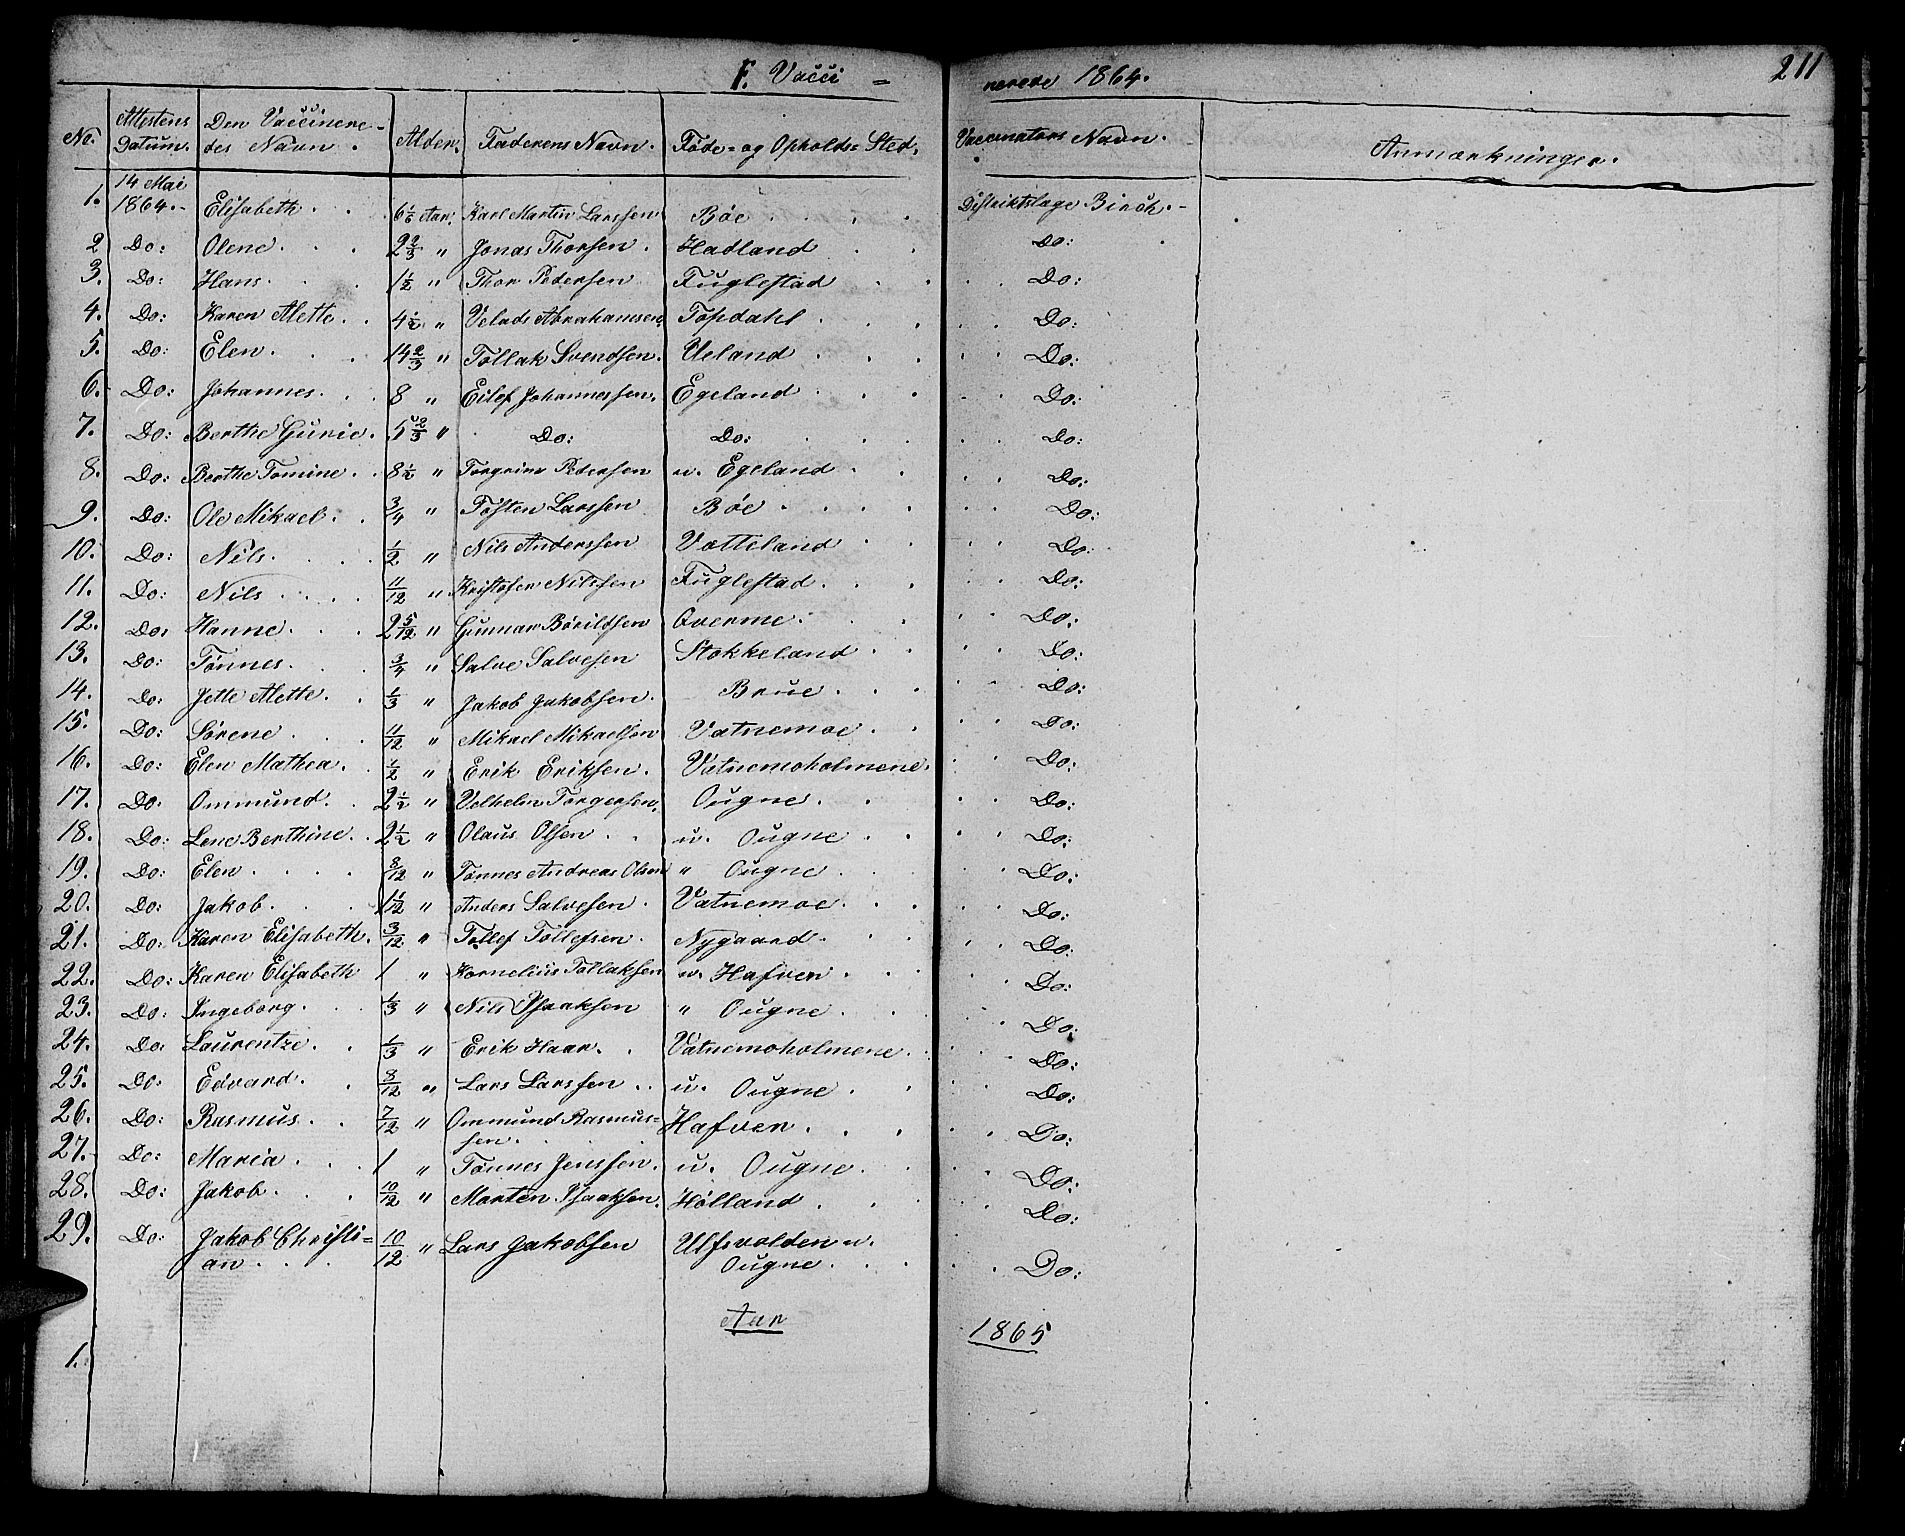 F. Vacci = nerede 1864. 211
No. Attestens Datum. Den Vaccinere-des Navn. Alder. Faderens Navn. Føde- og Opholds-Sted. Vaccinators Navn. Anmærkninger.
1. 14 Mai 1864.- Elisabeth . . Aar. Karl Martin Larssen Bøe . . . . Distriktslæge Birch.-
2 Do: Olene . . . 2 2/3 " Jonas Thorsen . Hadland . . Do:
3. Do: Hans . . . 1 1/2 " Thor Pedersen Fuglestad . . . . Do:
4. Do: Karen Alette . . 4 1/2 " Velads Abrahamsen. Topdahl . . . . . Do:
5. Do: Elen . . . 14 2/3 " Tollak Svendsen. Ueland . . . . . Do:
6. Do: Johannes . . . 8 " Eilef Johannessen. Egeland . . . . . Do:
7. Do: Berthe Gurie . 5 2/3 " . Do: Do: . . . . . Do:
8. Do: Berthe Tomine . . 8 1/2 " Torgrim Pedersen u. Egeland . . . . Do:
9. Do: Ole Mikael . . 3/4 " Tosten Larssen Bøe . . . . . Do:
10. Do: Nils . . . . 1/2 " Nils Anderssen Vatteland . . . . Do:
11. Do: Nils . . . . 11/12 " Kristofer Nilssen Fuglestad . . . . . Do:
12. Do: Hanne . . . 2 5/12 " Gunnar Børildsen Qverme . . . . . Do:
13. Do: Tønnes . . . 3/4 " Salve Salvesen Stokkeland . . . . Do:
14. Do: Jette Alette . . 1/3 " Jakob Jakobsen . Brue . . . . . Do:
15. Do: Sørene . . . 11/12 " Mikael Mikaelsen Vatnemoe . . . . Do:
16. Do: Elen Mathea . . 1/2 " Erik Eriksen . Vatnemoholmene . . . Do:
17. Do: Ommund . . 2 1/2 " Velhelm Torgersen. Ougne . . . . Do:
18. Do: Lene Berthine . . 2 1/2 " Olaus Olsen . . u. Ougne . . . . Do:
19. Do: Elen . . . . 8/12 " Tønnes Andreas Olsen " Ougne . . . . Do:
20. Do: Jakob . . . " Anders Salvesen . Vatnemoe . . . . . Do:
21. Do: Karen Elisabeth . 3/12 " Tollef Tollefsen . Nygaard . . . . . Do:
22. Do: Karen Elisabeth 1 " Kornelius Tollaksen u. Hafven . . . . Do:
23. Do: Ingeborg . . . 1/3 " Nils Isaaksen " Ougne . . . . . Do:
24. Do: Laurentze . . 1/3 " Erik Haar . . Vatnemoholmene . . . . Do:
25. Do: Edvard . . 8/12 " Lars Larssen . . u. Ougne . . . . Do:
26. Do: Rasmus . . 7/12 " Ommund Rasmus-sen . . . Hafven . . . . . Do:
27. Do: Maria . . . 1 " Tønnes Jenssen. u. Ougne . . . . Do:
28. Do: Jakob . . . 10/12 " Morten Isaaksen. Hølland . . . . . Do:
29. Do: Jakob Christi-an . . . 10/12 " Lars Jakobsen Ulfsvolden u. Ougne . . . . . Do:
Aar 1865
1.